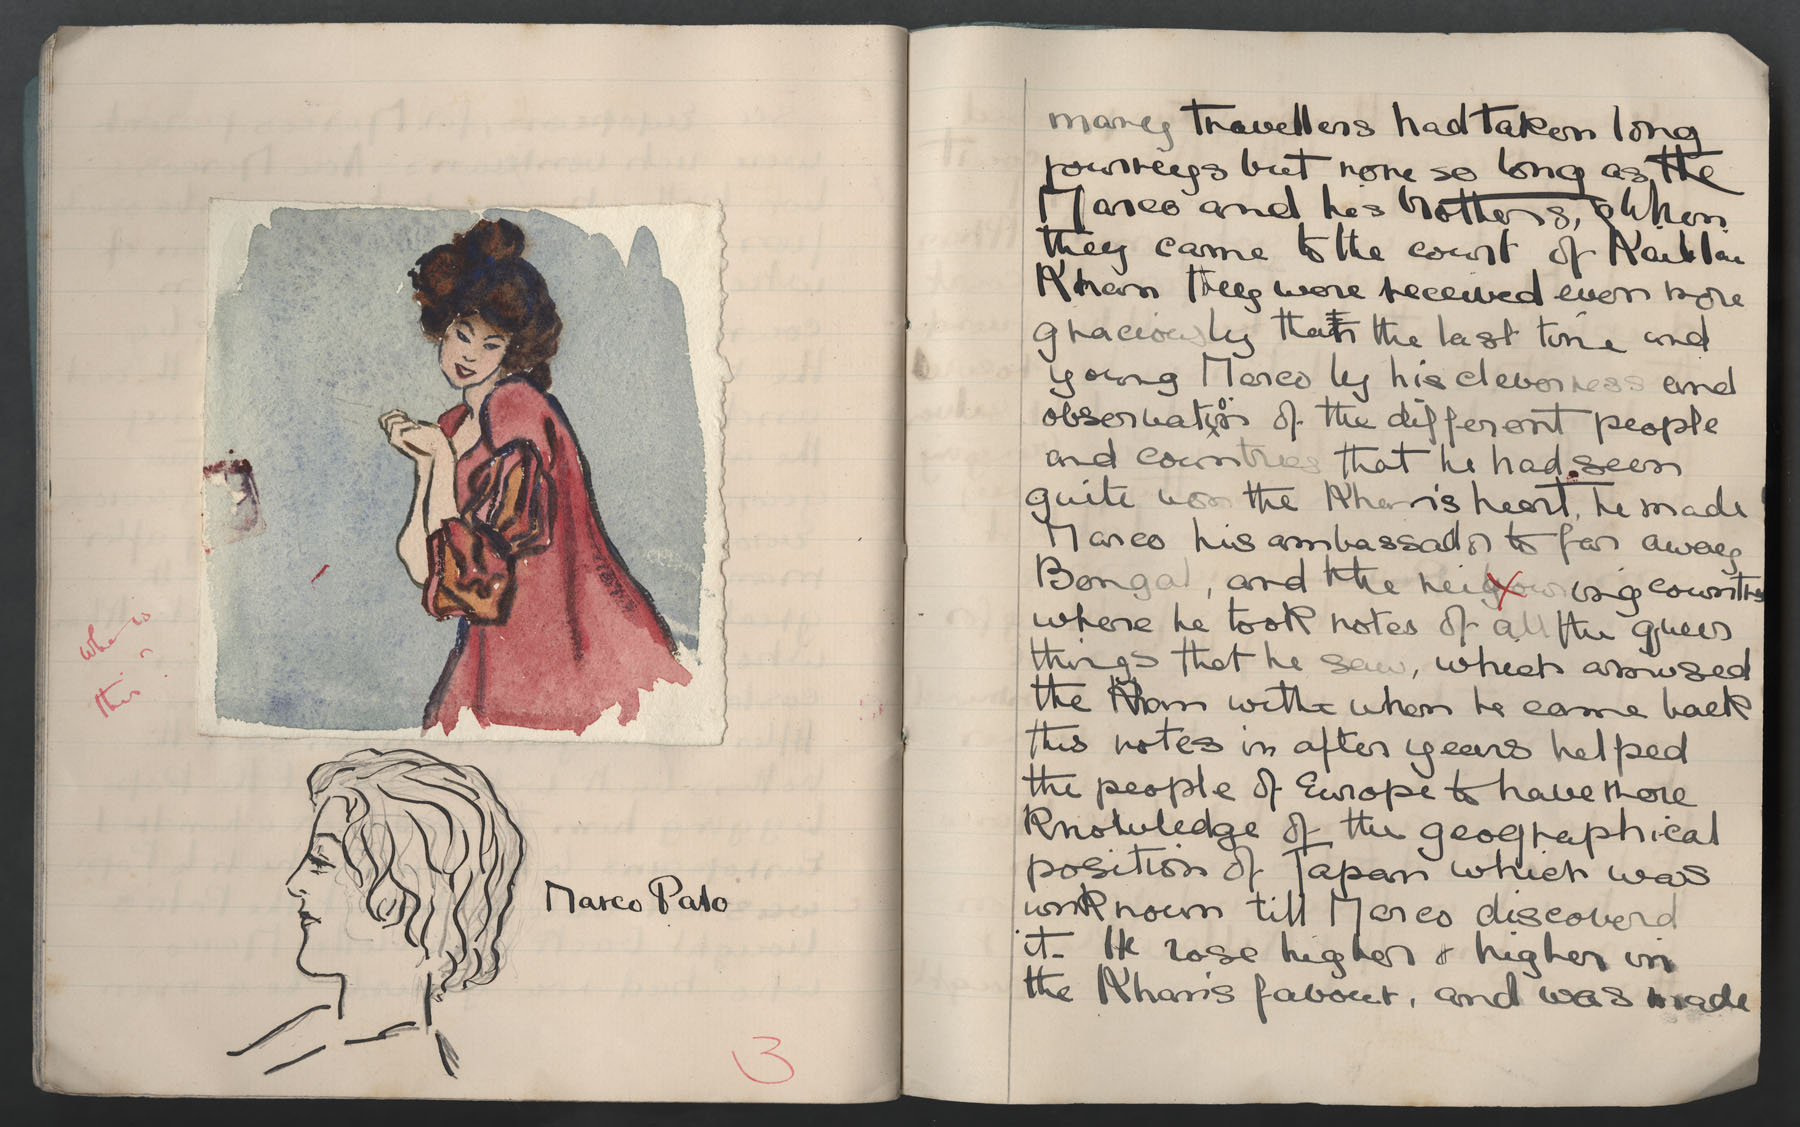 who is
this
Marco Palo
3
many travellers had taken long
journeys but none so long as the
Marco and his brothers, When
they came to the court of Kublai
Khan they were received even more
graciously than the last time and
young Marco by his cleverness and
observation of the different people
and countries that he had seen
quite won the Khan's heart, he made
Marco his ambassador to far away
Bengal, and the neighbouring countries
where he took notes of all the queer
things that he saw, which amused
the Khan with when he came back
this notes in after years helped
the people of Europe to have more
knowledge of the geographical
position of Japan which was
unknown till Marco discoverd
it. He rose higher & higher in
the Khan's favour, and was made